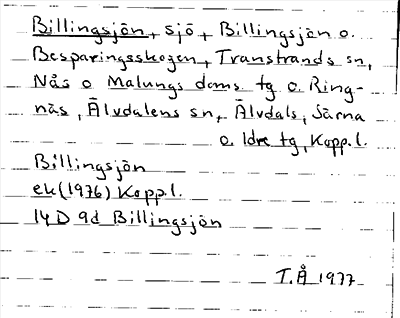 Billingsjön, sjö, Billingsjön o.
Besparingsskogen, Transtrands sn,
Nås o Malungs doms. tg o. Ring-
näs, Älvdalens sn, Älvdals, Särna
o. Idre tg, Kopp.l.
Billingsjön
ek (1976) Kopp.l.
14 D 9d Billingsjön
T.Å 1977